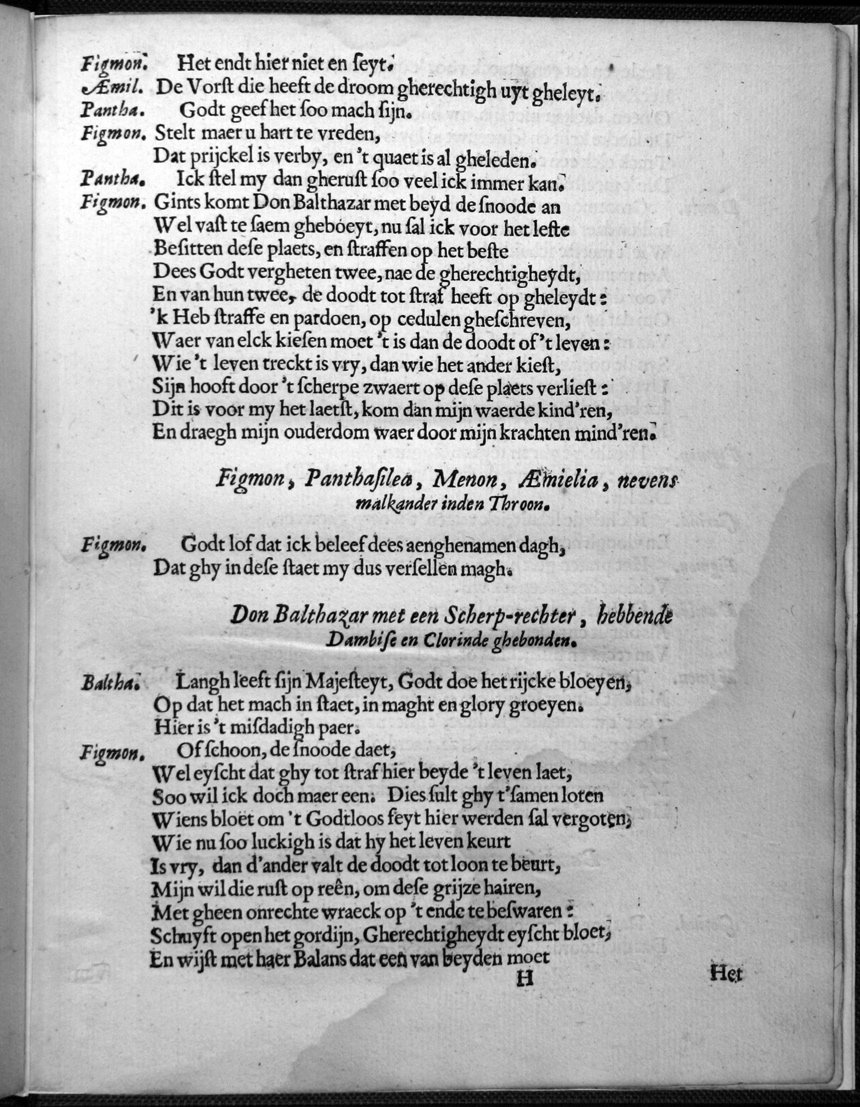 Figmon. Het endt hier niet en ſeyt.
Æmil. De Vorſt die heeft de droom gherechtigh uyt gheleyt.
Pantha. Godt geef het ſoo mach ſijn.
Figmon. Stelt maer u hart te vreden,
Dat prijckel is verby, en 't quaet is al gheleden.
Pantha. Ick ſtel my dan gheruſt ſoo veel ick immer kan.
Figmon. Gints komt Don Balthazar met beyd de ſnoode an
Wel vaſt te ſaem gheboeyt, nu ſal ick voor het leſte
Beſitten deſe plaets, en ſtraffen op het beſte
Dees Godt vergheten twee, nae de gherechtigheydt,
En van hun twee, de doodt tot ſtraf heeft op gheleydt:
'k Heb ſtraffe en pardoen, op cedulen gheſchreven,
Waer van elck kieſen moet 't is dan de doodt of 't leven:
Wie 't leven treckt is vry, dan wie het ander kieſt,
Sijn hooft door 't ſcherpe zwaert op deſe plaets verlieſt:
Dit is voor my het laetſt, kom dan mijn waerde kind'ren,
En draegh mijn ouderdom waer door mijn krachten mind'ren.
Figmon, Panthaſilea, Menon, Æmielia, nevens
malkander inden Throon.
Figmon. Godt lof dat ick beleef dees aenghenamen dagh,
Dat ghy in deſe ſtaet my dus verſellen magh.
Don Balthazar met een Scherp-rechter, hebbende
Dambiſe en Clorinde ghebonden.
Baltha. Langh leeft ſijn Majeſteyt, Godt doe het rijcke bloeyen,
Op dat het mach in ſtaet, in maght en glory groeyen.
Hier is 't miſdadigh paer.
Figmon. Of ſchoon, de ſnoode daet,
Wel eyſcht dat ghy tot ſtraf hier beyde 't leven laet,
Soo wil ick doch maer een. Dies ſult ghy t'ſamen loten
Wiens bloet om 't Godtloos feyt hier werden ſal vergoten;
Wie nu ſoo luckigh is dat hy het leven keurt
Is vry, dan d'ander valt de doodt tot loon te beurt,
Mijn wil die ruſt op reên, om deſe grijze hairen,
Met gheen onrechte wraeck op 't ende te beſwaren:
Schuyft open het gordijn, Gherechtigheydt eyſcht bloet,
En wijſt met haer Balans dat een van beyden moet
H Het